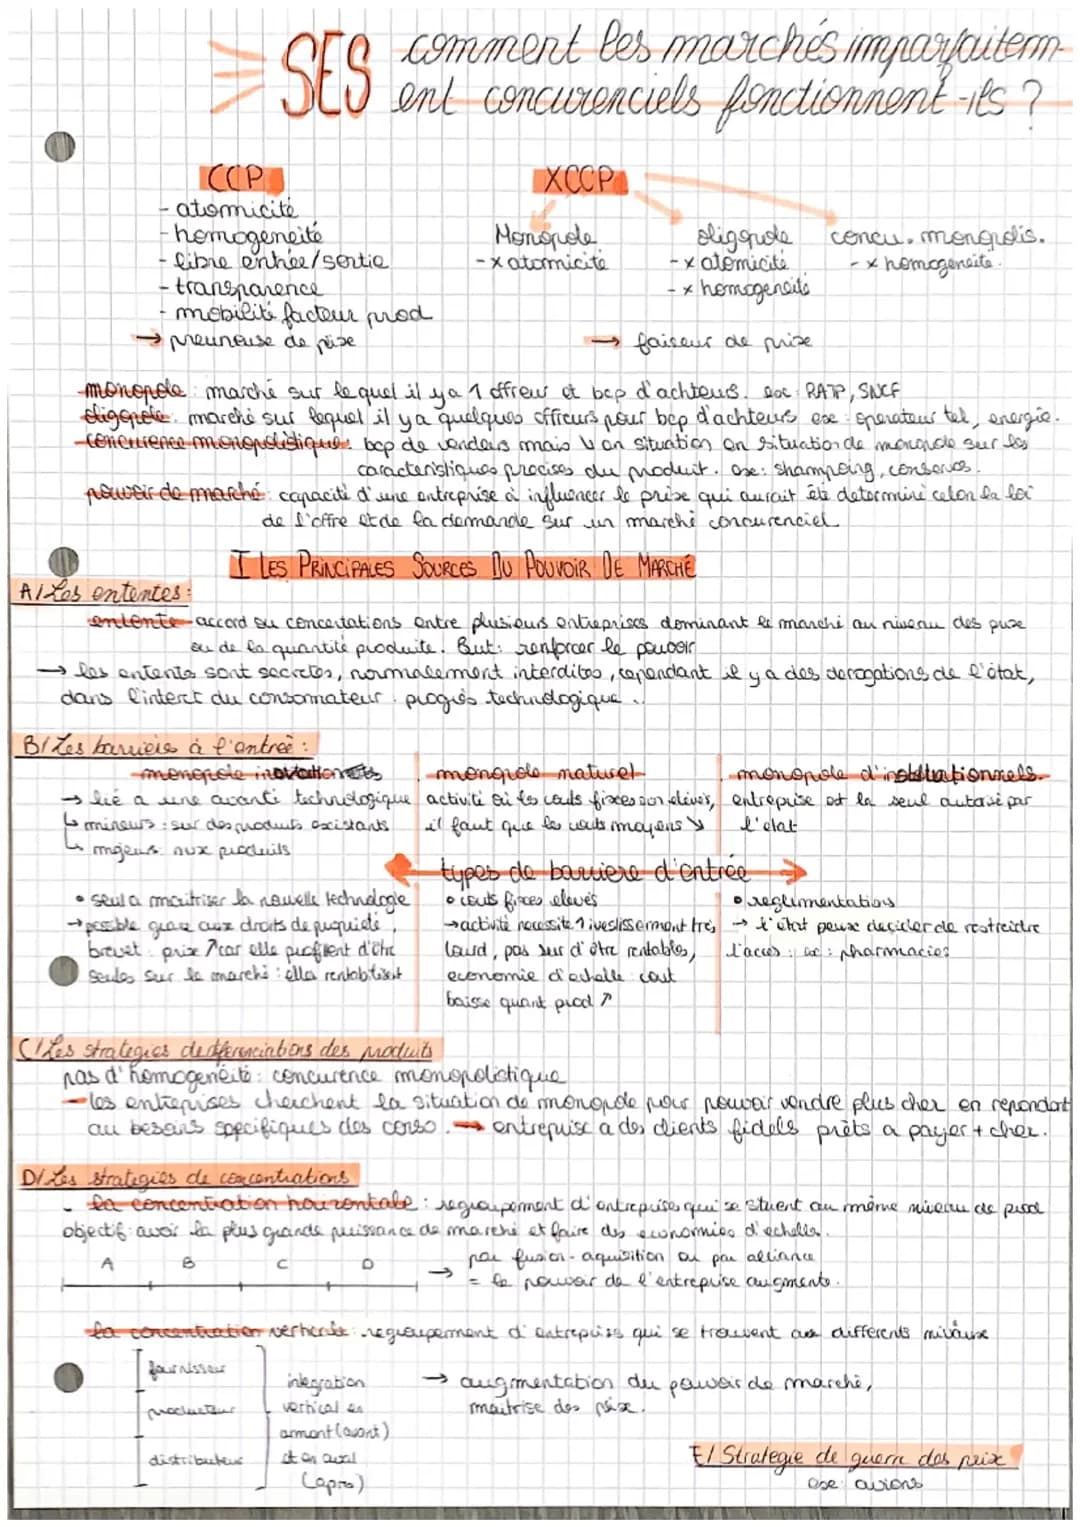 SES comment les marchés imparfaitem-
ent concurenciels fonctionnent-ils ?
CCP
- atomicité
- homogeneité
- libre entrée/sortie
- transparence
- mobilité facteur prod
→ preuneuse de prixe
XCCP
Monopole
- x atomicité
oligopole
- x atomicité
- x homogeneité
concu. monopolis.
- x homogeneité.
→ faiseur de prixe
monopole : marché sur lequel il y a 1 offreur et bcp d'achteurs. exe : RATP, SNCF
oligopole : marché sur lequel il y a quelques offreurs pour bcp d'achteurs exe : operateur tel, energie.
concurence monopolistique : bcp de venders mais en situation en situation de monopole sur les
caracteristiques precises du produit. exe : shampoing, conserves.
pouvoir de marché : capacité d'une entreprise à influencer le prixe qui aurait été determiné celon la loi
de l'offre et de la demande sur un marché concurenciel
I LES PRINCIPALES SOURCES DU POUVOIR DE MARCHÉ
A/ Les ententes :
entente accord ou concertations entre plusieurs entreprises dominant le marché au niveau des prixe
ou de la quantité produite. But : renforcer le pouvoir
→ les ententes sont secretes, normalement interdites, cependant il y a des derogations de l'état,
dans l'interet du consommateur : progrès technologique ..
B/ Les barrieres à l'entrée :
monopole
→ lié a une avancé technologique
↳ mineurs : sur des produits existants
↳ majeurs : nux produits
monopole naturel
activité où les couts fixes son elevés,
il faut que les couts moyens ↘
monopole d'institutionnels.
entreprise est la seul autorisé par
l'état
types de barriere d'entrée
• seul a maitriser la nouvelle technologie
→ possible grace aux droits de propriété,
brevet : prix ↗ car elle profitent d'être
seules sur le marché : elles rentabilisent
• couts fixes elevés
→ activité necessite 1 ivestissement très
lourd, pas sur d'être rentables,
economie d'echelle : cout
baisse quant prod ↗
• reglementations
→ l'état peux decider de restreidre
l'acces : ex : pharmacies
C/ Les strategies de diferenciations des produits
pas d'homogeneité : concurence monopolistique
→ les entreprises cherchent la situation de monopole pour pouvoir vendre plus cher en repondant
au besoins specifiques des conso. → entreprise a des clients fidels prêts a payer + cher.
D/ Les strategies de concentrations
- la concentration horizontale : regroupement d'entreprises qui se situent au même niveau de prod
objectif : avoir la plus grande puissance de marché et faire des economies d'echelles.
A B C D
→ par fusion - aquisition ou par alliance
= le pouvoir de l'entreprise augmente.
la concentration verticale : regroupement d'entreprises qui se trouvent aux differents nivause
fournisseur
producteur
distributeur
integration
vertical en
amont (avant)
et en aval
(apres)
→ augmentation du pouvoir de marché,
maitrise des prixe.
E/ Strategie de guerre des prixe
exe : avions